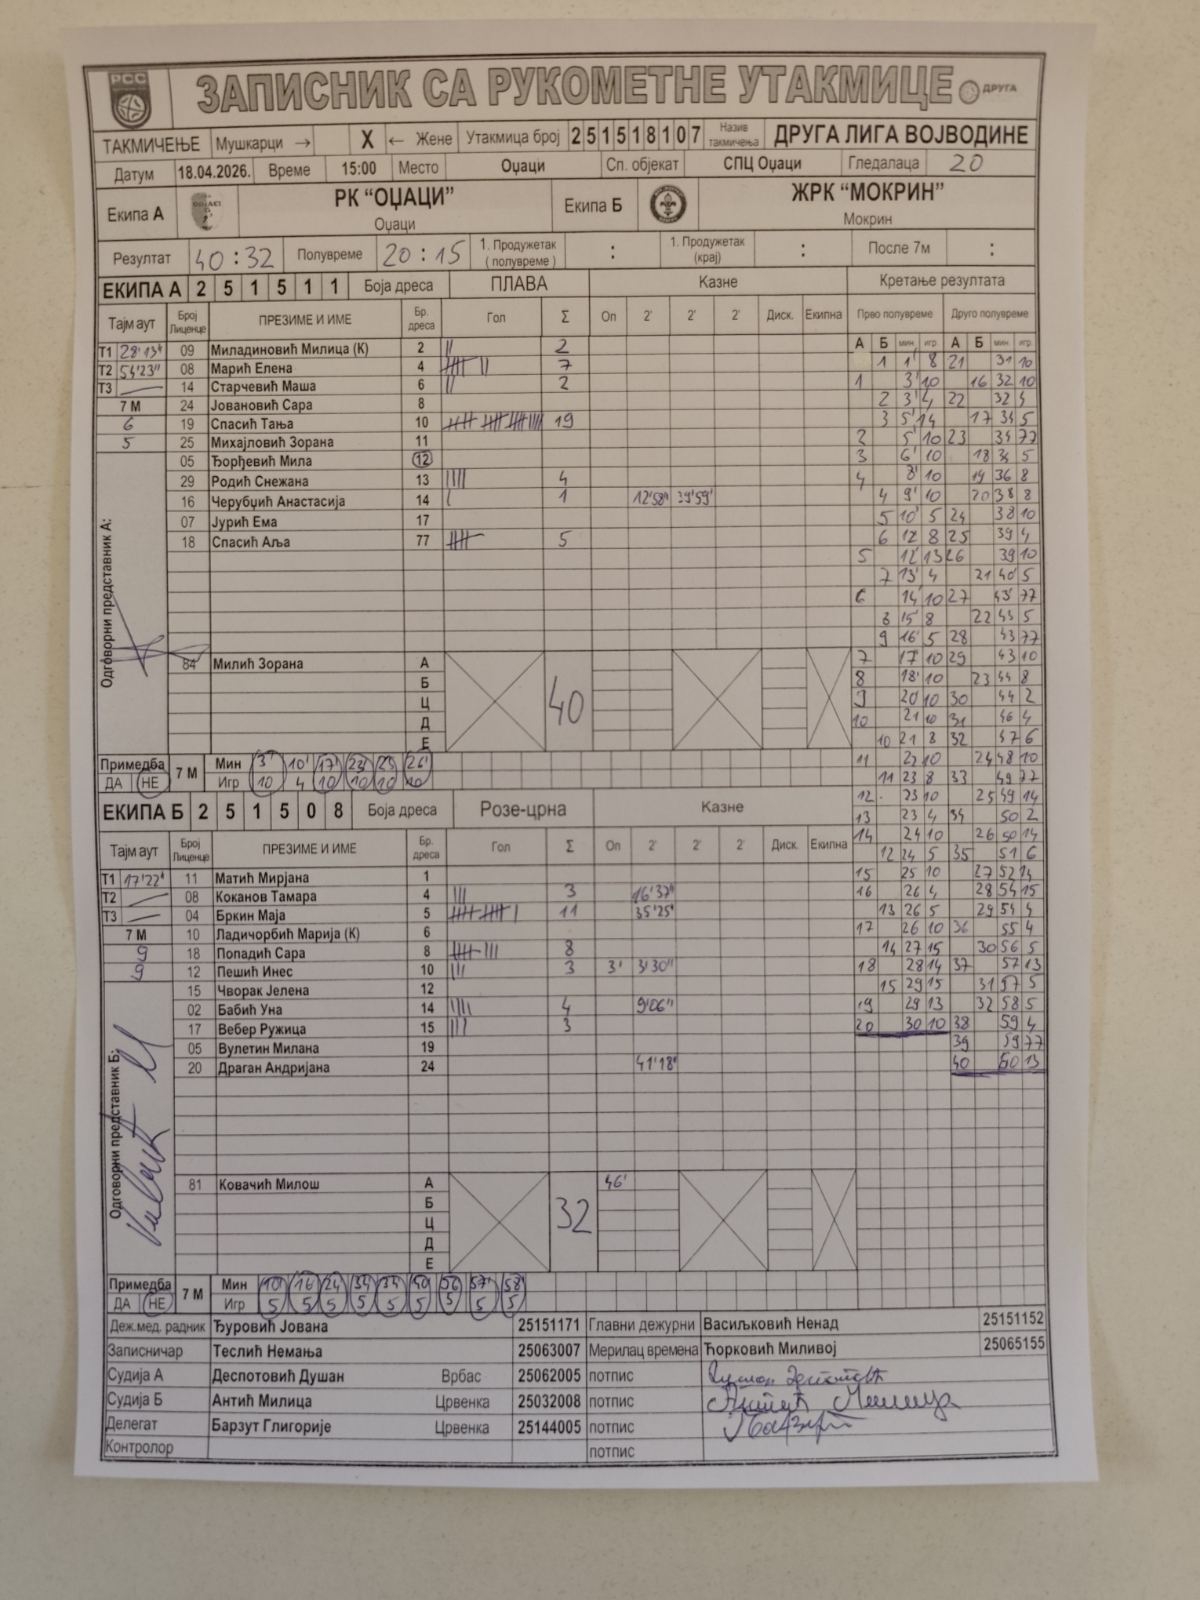 РСС
ЗАПИСНИК СА РУКОМЕТНЕ УТАКМИЦЕ ДРУГА
ТАКМИЧЕЊЕ Мушкарци → X ← Жене Утакмица број 2 5 1 5 1 8 1 0 7 Назив такмичења ДРУГА ЛИГА ВОЈВОДИНЕ
Датум 18.04.2026. Време 15:00 Место Оџаци Сп. објекат СПЦ Оџаци Гледалаца 20
Екипа А РК "ОЏАЦИ" Оџаци Екипа Б ЖРК "МОКРИН" Мокрин
Резултат 40 : 32 Полувреме 20 : 15 1. Продужетак ( полувреме ) : 1. Продужетак (крај) : После 7м :
ЕКИПА А 2 5 1 5 1 1 Боја дреса ПЛАВА Казне Кретање резултата
Тајм аут Број Лиценце ПРЕЗИМЕ И ИМЕ Бр. дреса Гол Σ Оп 2' 2' 2' Диск. Екипна Прво полувреме Друго полувреме
А Б мин. игр. А Б мин. игр.
Т1 28'13" 09 Миладиновић Милица (К) 2 || 2
Т2 54'23" 08 Марић Елена 4 7
Т3 — 14 Старчевић Маша 6 || 2
7 М 24 Јовановић Сара 8
6 19 Спасић Тања 10 19
5 25 Михајловић Зорана 11
05 Ђорђевић Мила 12
29 Родић Снежана 13 |||| 4
16 Черубџић Анастасија 14 | 1 12'58" 39'59"
07 Јурић Ема 17
18 Спасић Аља 77 5
Одговорни представник А:
84 Милић Зорана А
Б
Ц 40
Д
Е
Примедба ДА НЕ 7 М Мин 3' 10' 17' 23 25 26'
Игр 10 4 10 10 10 10
1 1' 8 21 31 10
1 3' 10 16 32 10
2 3' 4 22 32 4
3 5' 14 17 34 5
2 5' 10 23 34 77
3 6' 10 18 34 5
4 8' 10 19 36 8
4 9' 10 20 38 8
5 10' 5 24 38 10
6 12 8 25 39 4
5 12' 13 26 39 10
7 13' 4 21 40' 5
6 14' 10 27 43' 77
8 15' 8 22 43 5
9 16' 5 28 43 77
7 17' 10 29 43 10
8 18' 10 23 44 8
9 20' 10 30 44 2
10 21 10 31 46 4
10 21 8 32 47 6
11 22 10 24 48 10
11 23 8 33 49 77
12 23 10 25 49 14
13 23 4 34 50 2
14 24 10 26 50 14
12 24 5 35 51 6
15 25 10 27 52 14
16 26 4 28 54 15
13 26 5 29 54 4
17 26 10 36 55 4
14 27 15 30 56 5
18 28 14 37 57 13
15 29 15 31 57 5
19 29 13 32 58 5
20 30 10 38 59 4
39 59 77
40 60 13
ЕКИПА Б 2 5 1 5 0 8 Боја дреса Розе-црна Казне
Тајм аут Број Лиценце ПРЕЗИМЕ И ИМЕ Бр. дреса Гол Σ Оп 2' 2' 2' Диск. Екипна
Т1 17'22" 11 Матић Мирјана 1
Т2 — 08 Коканов Тамара 4 ||| 3 16'37"
Т3 — 04 Бркин Маја 5 11 35'25"
7 М 10 Ладичорбић Марија (К) 6
9 18 Попадић Сара 8 8
9 12 Пешић Инес 10 ||| 3 3' 3'30"
15 Чворак Јелена 12
02 Бабић Уна 14 |||| 4 9'06"
17 Вебер Ружица 15 ||| 3
05 Вулетин Милана 19
20 Драган Андријана 24 41'18"
Одговорни представник Б:
81 Ковачић Милош А 46'
Б
Ц 32
Д
Е
Примедба ДА НЕ 7 М Мин 10' 16 24 34 34 40 56 57' 58'
Игр 5 5 5 5 5 5 5 5 5
Деж.мед. радник Ђуровић Јована 25151171 Главни дежурни Васиљковић Ненад 25151152
Записничар Теслић Немања 25063007 Мерилац времена Ћорковић Миливој 25065155
Судија А Деспотовић Душан Врбас 25062005 потпис
Судија Б Антић Милица Црвенка 25032008 потпис Антић Милица
Делегат Барзут Глигорије Црвенка 25144005 потпис
Контролор потпис